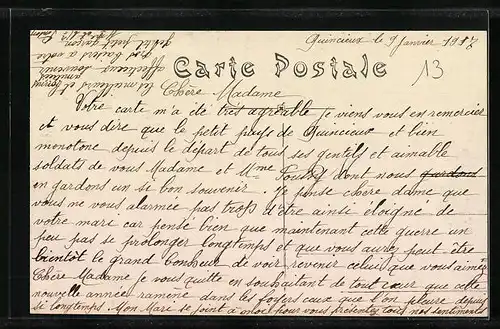 Quincieux le 9 Janvier 1917
13
Carte Postale
Chère Madame
Votre carte m'a été très agréable je viens vous en remercier
et vous dire que le petit de Quincieux et bien
monotône depuis le départ de tous ses gentils et aimable
soldats de vous Madame et Mme dont nous gardons
en gardons un si bon souvenir. Je pense chère dame que
vous ne vous alarmée pas trop d'être ainsi éloigné de
votre mari car pensé bien que maintenant cette guerre un
peu pas se prolonger longtemps et que vous aurez peut être
bientôt le grand bonheur de voir revenir celui que vous aimée
Chère Madame je vous quitte en souhaitant de tout cœur que cette
nouvelle année ramène dans les foyers ceux que l'on pleure depuis
si longtemps Mon Mari se joint a moi pour vous présentez tous nos sentiments
les meilleurs et
affectueux souvenir
gros baisers a votre
gentil petit garçon